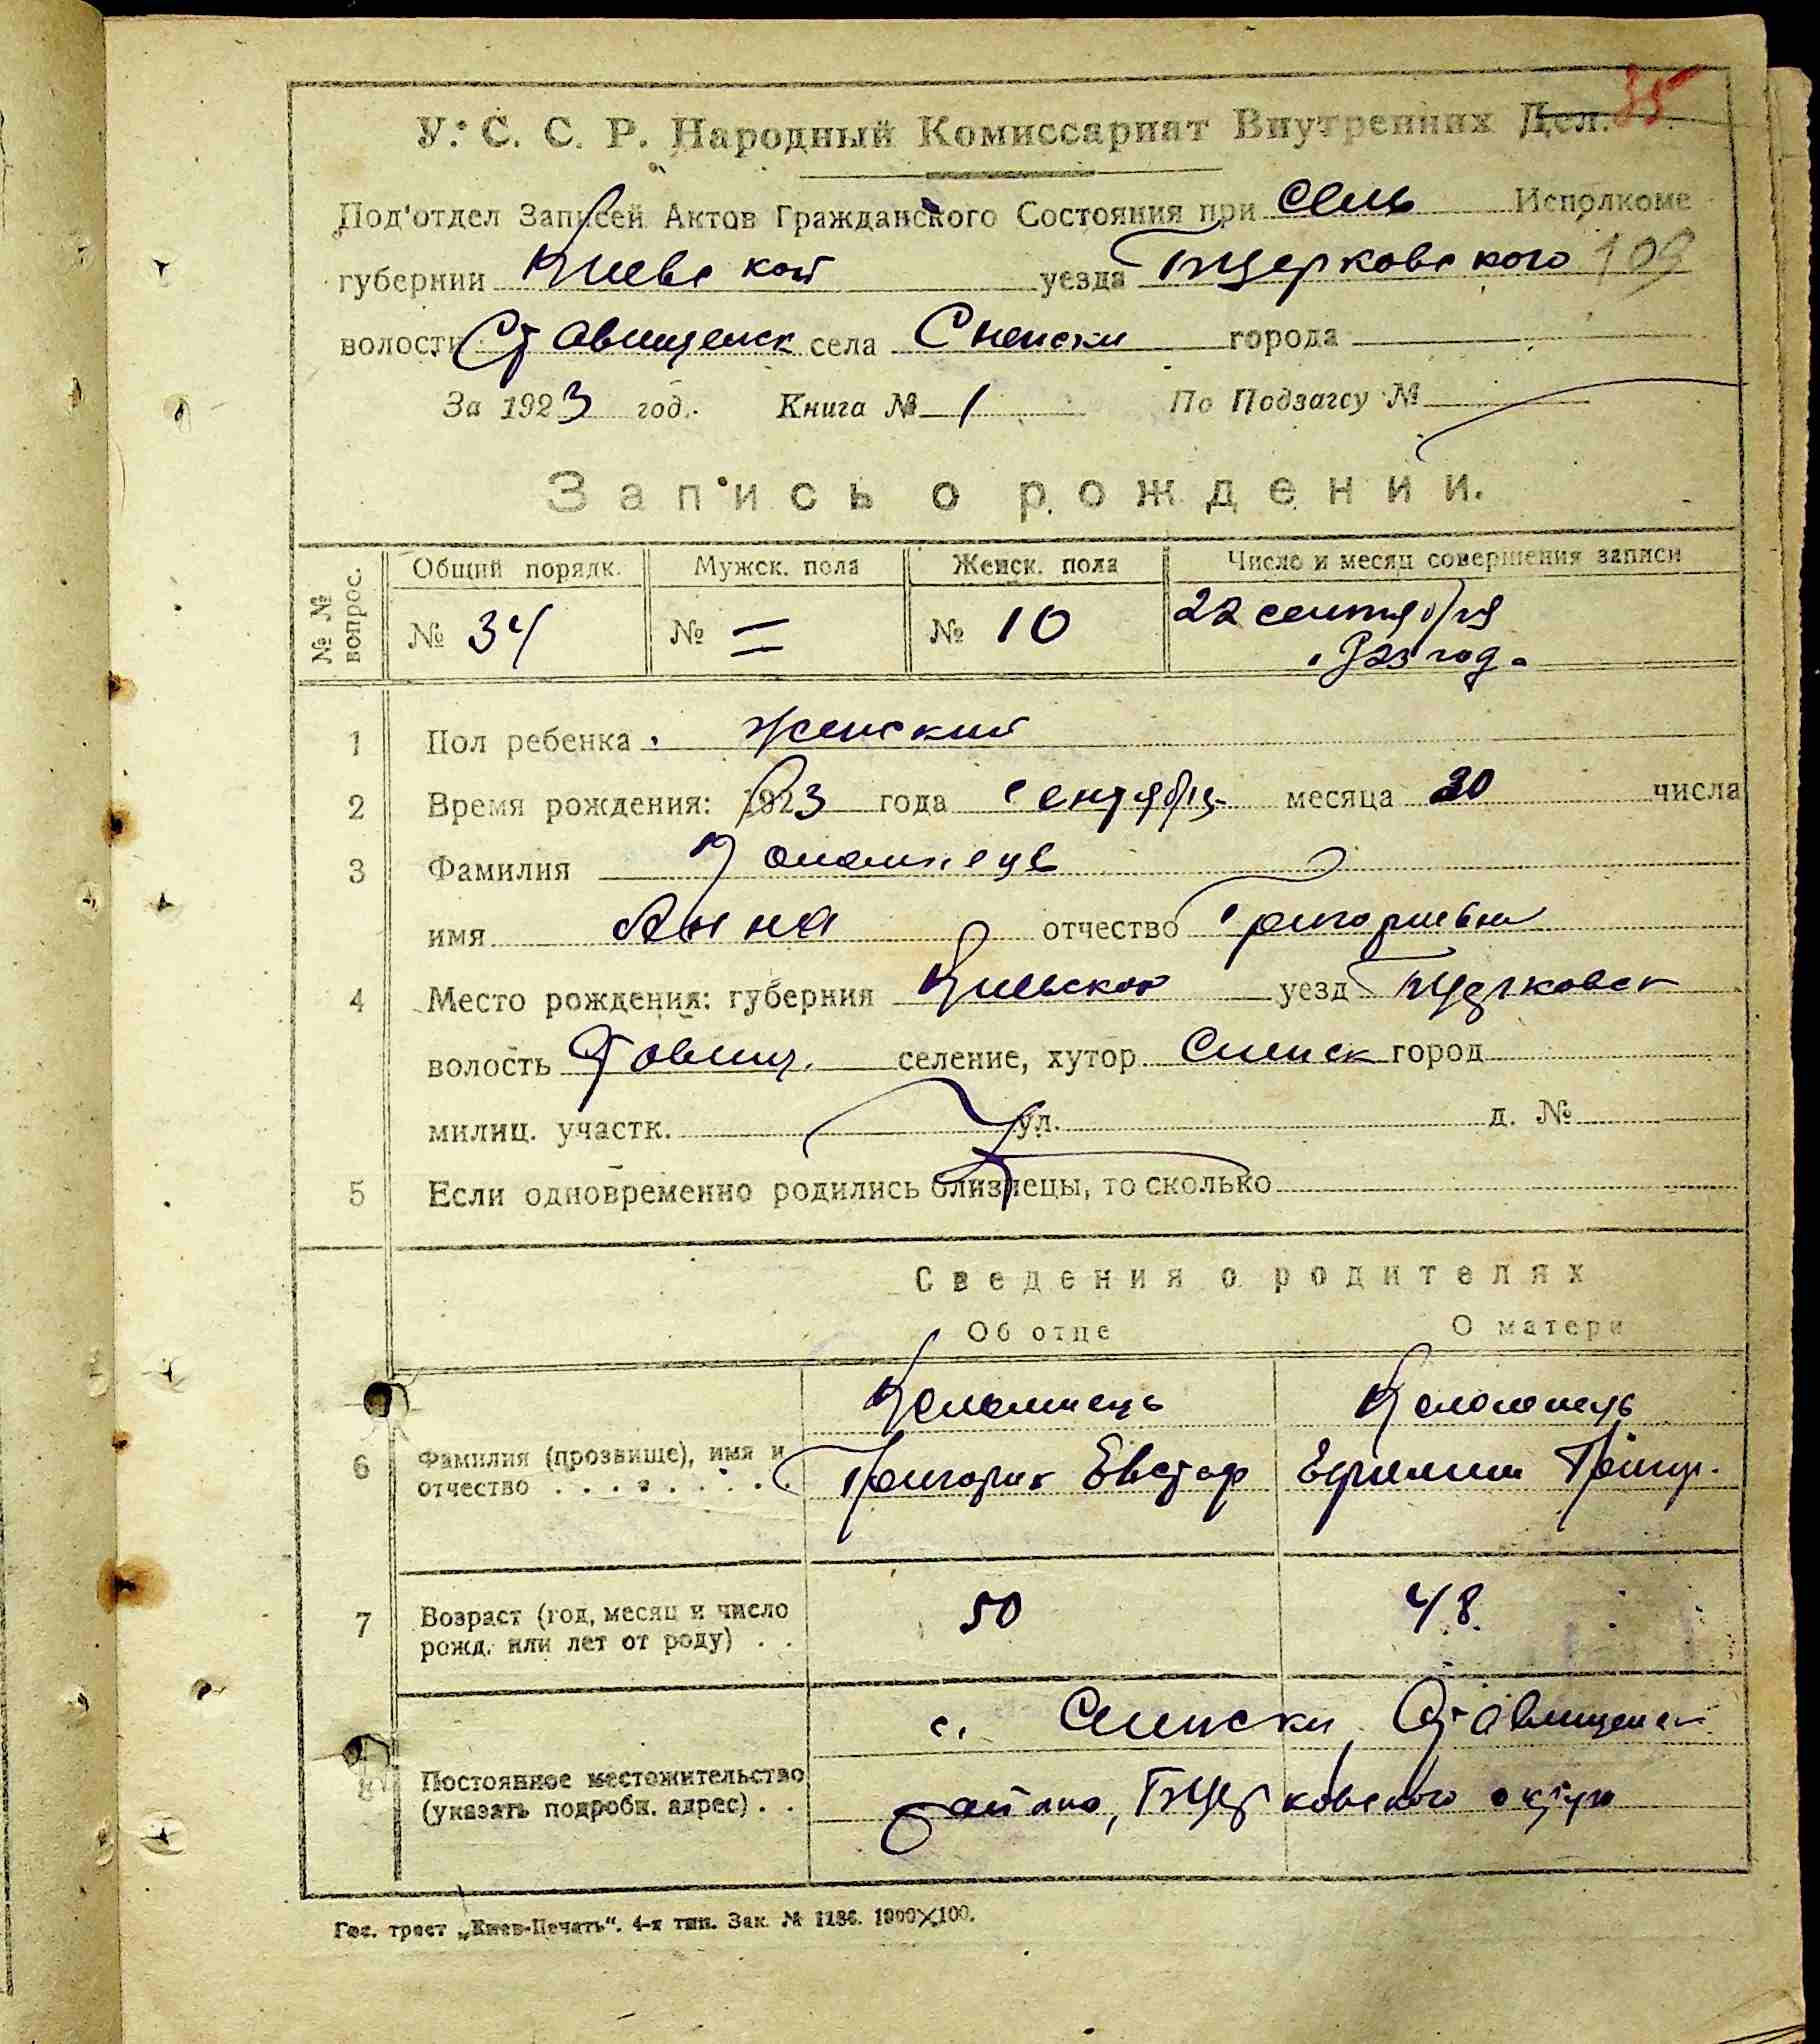 35
У. С. С. Р. Народный Комиссариат Внутренних Дел.
Под'отдел Записей Актов Гражданского Состояния при Сель Исполкоме
губернии Киевской уезда Бцерковского 109
волости Ставищенск села города
За 1923 год. Книга № 1 По Подзагсу №
Запись о рождении.
№ № вопрос. Общий порядк. Мужск. пола Женск. пола Число и месяц совершения записи
№ 34 № = № 10 22 сентября
1923 год.
1 Пол ребенка. женский
2 Время рождения: 1923 года сентября месяца 20 числа
3 Фамилия Коломиець
имя Анна отчество Григорьевна
4 Место рождения: губерния Киевской уезд Бцерковск
волость Ставищ. селение, хутор город
милиц. участк. ул. д. №
5 Если одновременно родились близнецы, то сколько
Сведения о родителях
Об отце О матери
Коломиець Коломиець
6 Фамилия (прозвище), имя и
отчество . . . . . . . . Григорий Евстаф Григ.
7 Возраст (год, месяц и число
рожд. или лет от роду) . . 50 48
с. Ставищенск
8 Постоянное местожительство
(указать подробн. адрес) . . района, БЦерковского округа
Гос. трест „Киев-Печать“. 4-я тип. Зак. № 1186. 1000×100.